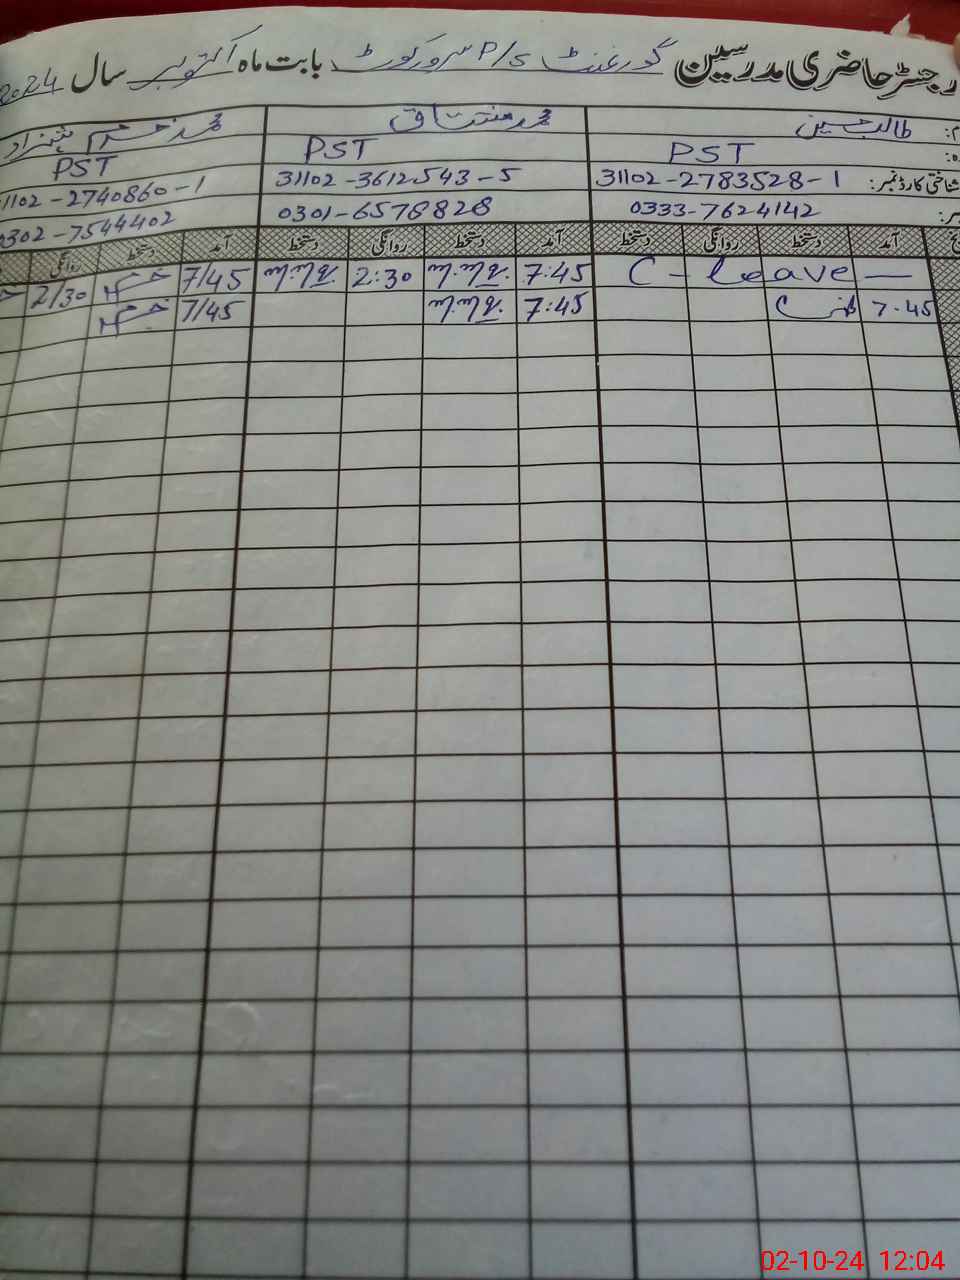 رجسٹر حاضری مدرسین گورنمنٹ P/S سرور کوٹ بابت ماہ اکتوبر سال 2024
طالب حسین محمد مشتاق محمد خرم شہزاد
PST PST PST
شناختی کارڈ نمبر: 31102-2783528-1 31102-3612543-5 31102-2740860-1
0333-7624142 0301-6578828 0302-7544402
آمد دستخط روانگی دستخط آمد دستخط روانگی دستخط آمد دستخط روانگی
C - leave — 7:45 m.mq. 2:30 m.mq. 7/45 2/30
7.45 7:45 m.mq. 7/45
02-10-24 12:04